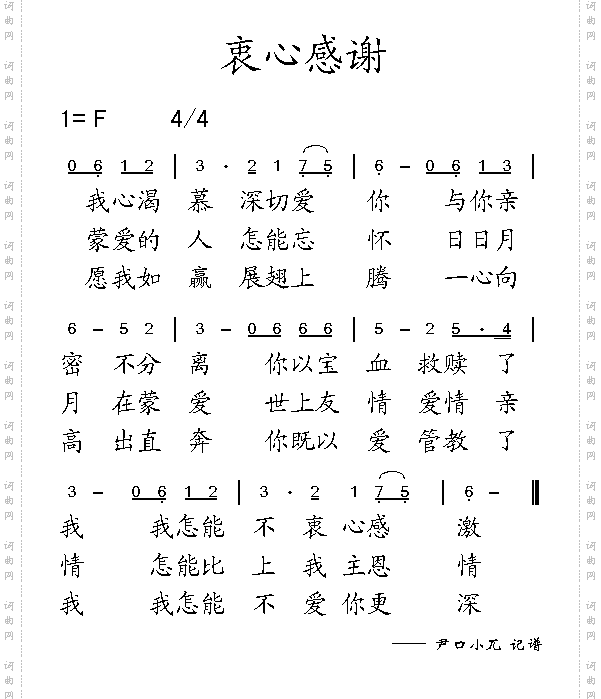 衷心感谢
1= F 4/4
0 6 1 2 | 3 · 2 1 7 5 | 6 – 0 6 1 3 |
我心渴 慕 深切爱 你 与你亲
蒙爱的 人 怎能忘 怀 日日月
愿我如 赢 展翅上 腾 一心向
6 – 5 2 | 3 – 0 6 6 6 | 5 – 2 5 · 4 |
密 不分 离 你以宝 血 救赎 了
月 在蒙 爱 世上友 情 爱情 亲
高 出直 奔 你既以 爱 管教 了
3 – 0 6 1 2 | 3 · 2 1 7 5 | 6 –
我 我怎能 不 衷 心感 激
情 怎能比 上 我 主恩 情
我 我怎能 不 爱 你更 深
—— 尹口小兀 记谱
词曲网